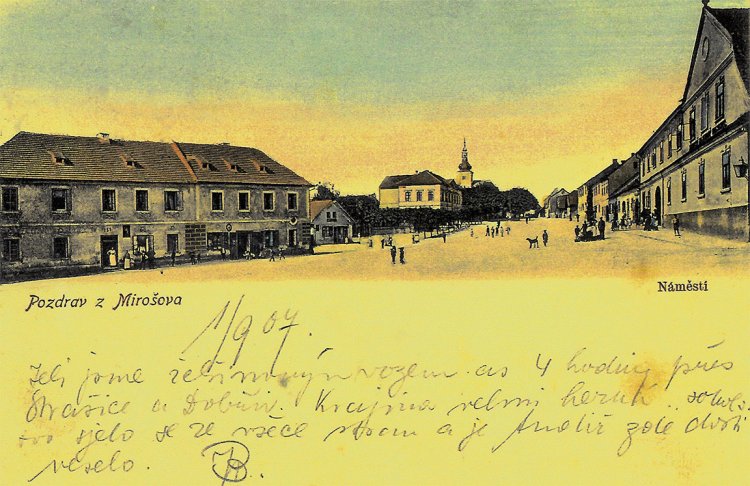 Pozdrav z Mirošova
Náměstí
1/9 07.
Jeli jsme žebřinovým vozem as 4 hodiny přes
Strašice a Dobřív. Krajina velmi hezká.. sokol-
stvo sjelo se ze všece stran a je tudíž zde dosti
veselo.